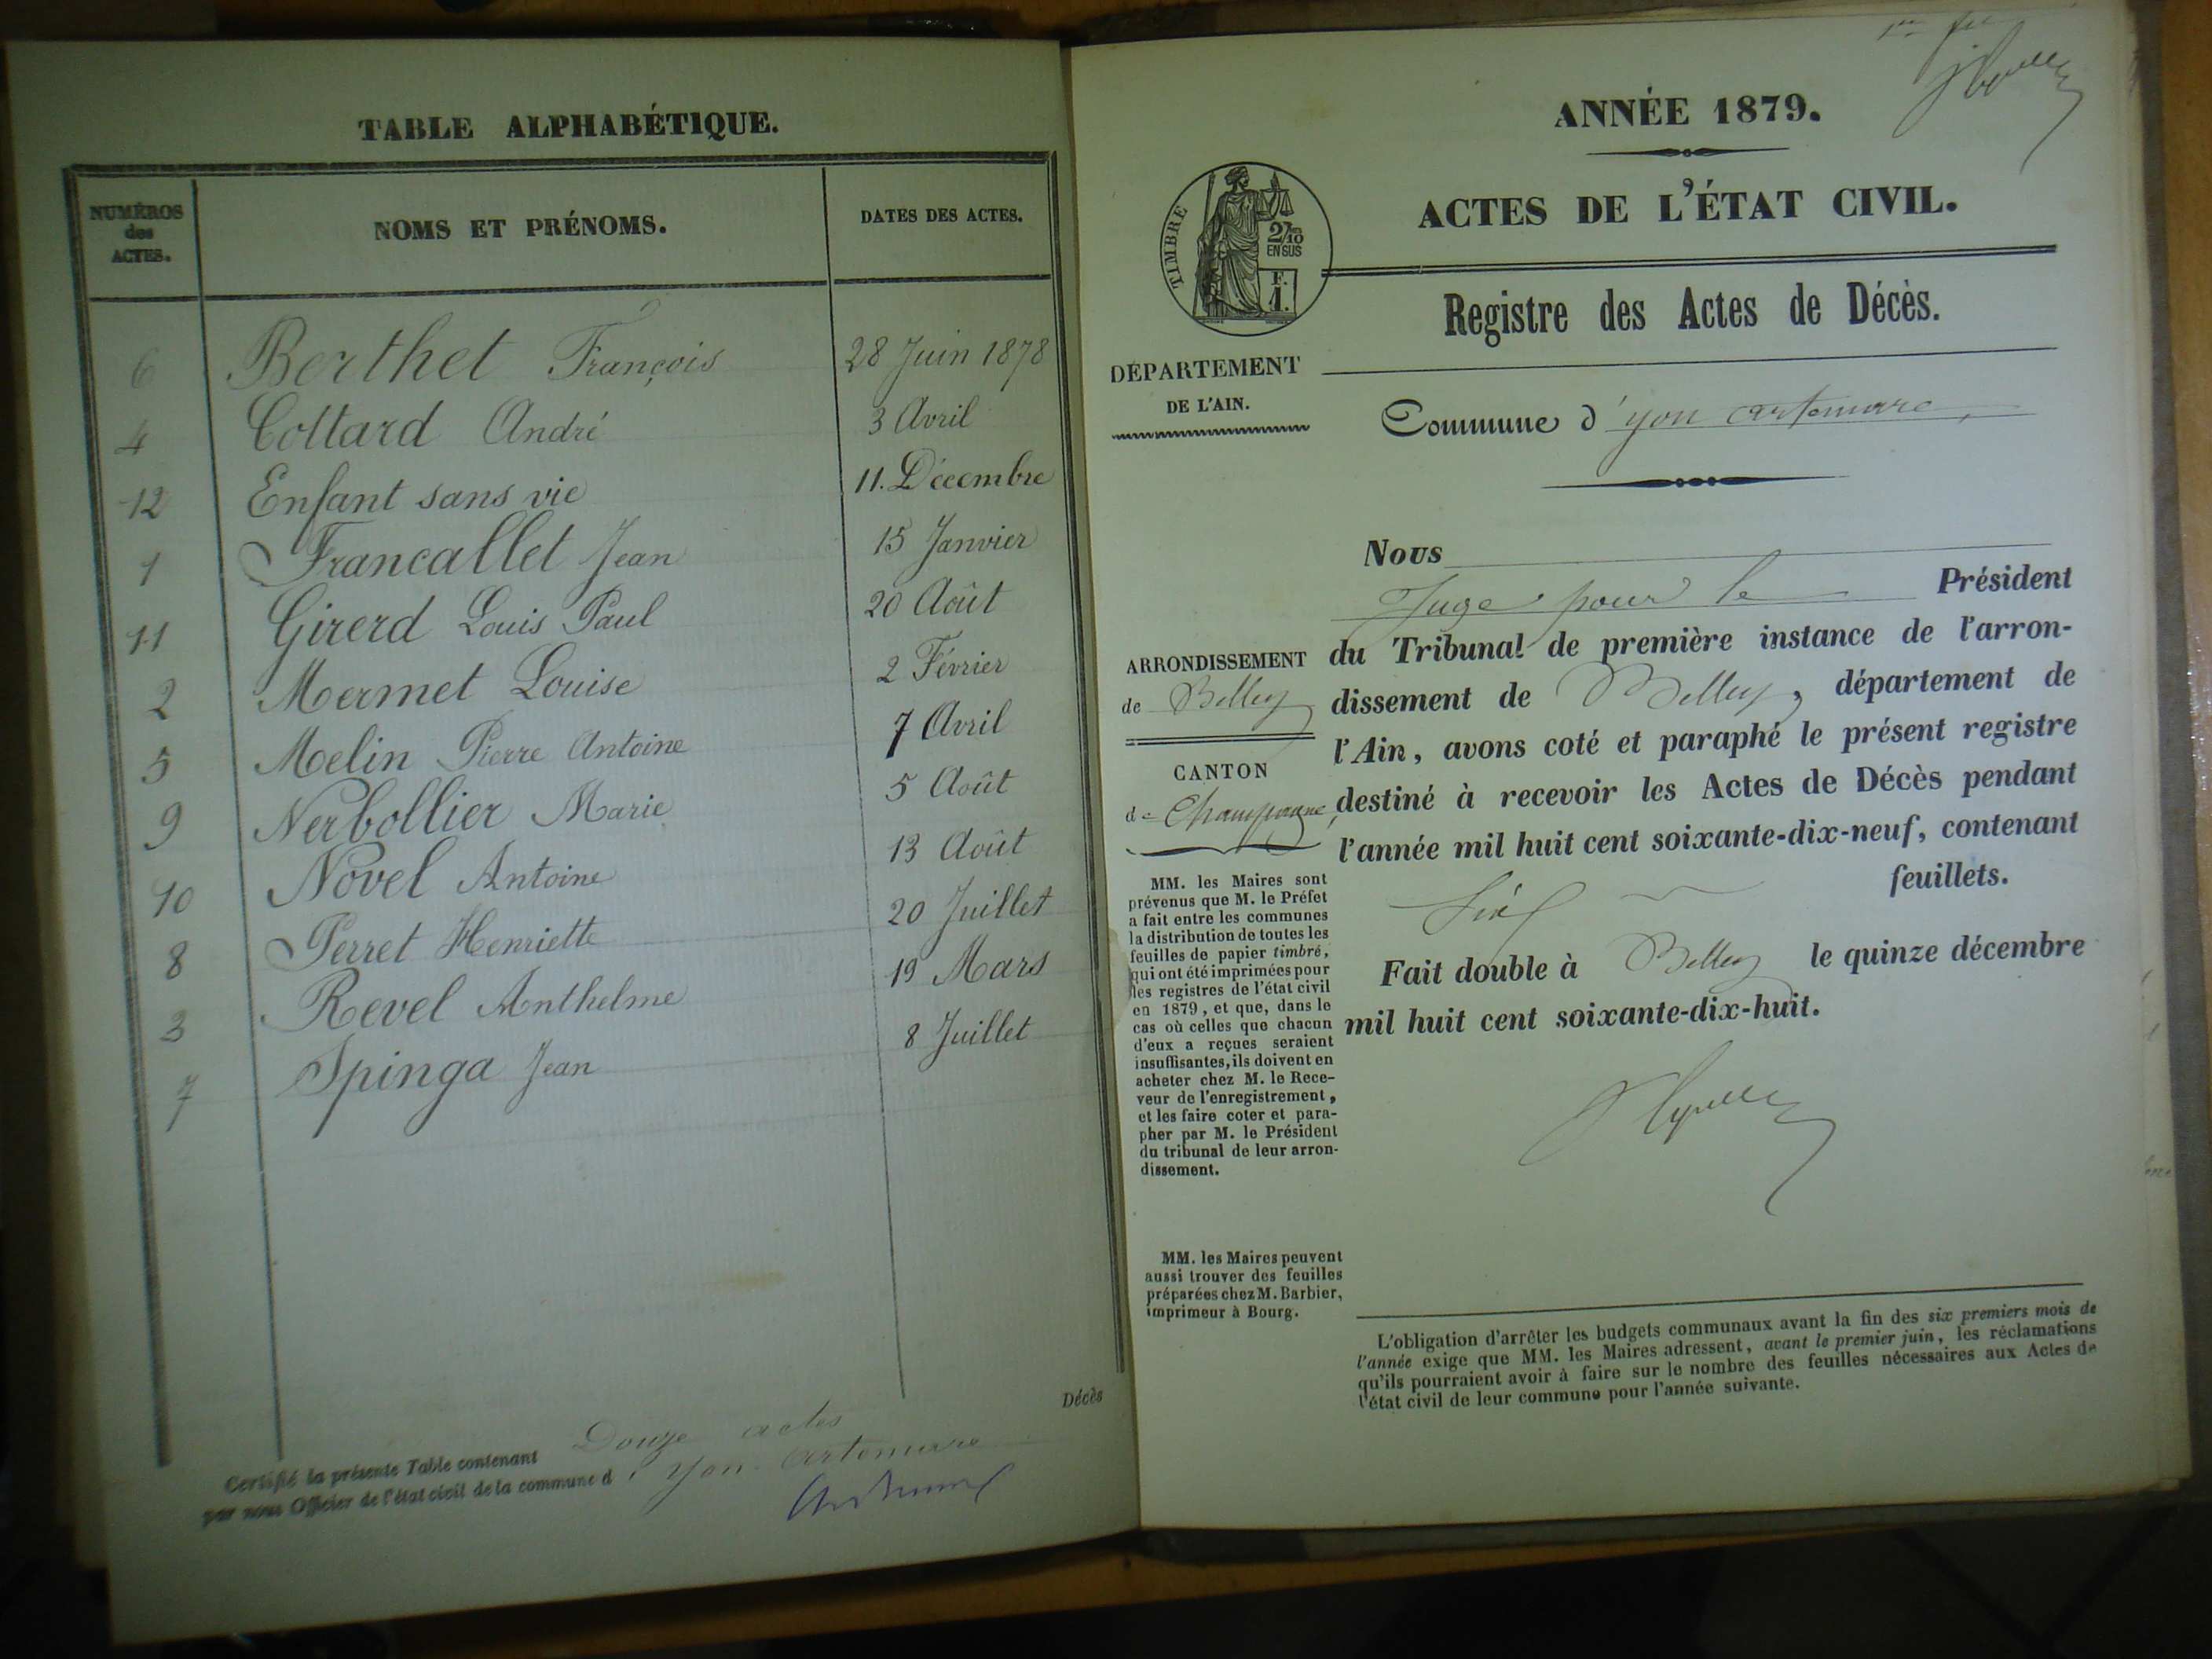 TABLE ALPHABÉTIQUE.
NUMÉROS
des
ACTES.
NOMS ET PRÉNOMS.
DATES DES ACTES.
6 Berthet François 28 Juin 1878
4 Cottard André 3 Avril
12 Enfant sans vie 11. Décembre
1 Francallet Jean 15 Janvier
11 Girerd Louis Paul 20 Août
2 Mermet Louise 2 Février
5 Melin Pierre Antoine 7 Avril
9 Nerbollier Marie 5 Août
10 Novel Antoine 13 Août
8 Perret Henriette 20 Juillet
3 Revel Anthelme 19 Mars
7 Spinga Jean 8 Juillet
Décès
Certifié la présente Table contenant Douze actes
par nous Officier de l'état civil de la commune d'yon. artemare
ANNÉE 1879.
ACTES DE L'ÉTAT CIVIL.
TIMBRE
2/10
EN SUS
F.
1.
Registre des Actes de Décès.
DÉPARTEMENT
DE L'AIN.
Commune d'yon artemare,
Nous
Juge pour le Président
du Tribunal de première instance de l'arron-
dissement de Belley, département de
l'Ain, avons coté et paraphé le présent registre
destiné à recevoir les Actes de Décès pendant
l'année mil huit cent soixante-dix-neuf, contenant
feuillets.
Fait double à Belley le quinze décembre
mil huit cent soixante-dix-huit.
ARRONDISSEMENT
de Belley
CANTON
de Champagne,
MM. les Maires sont
prévenus que M. le Préfet
a fait entre les communes
la distribution de toutes les
feuilles de papier timbré,
qui ont été imprimées pour
les registres de l'état civil
en 1879, et que, dans le
cas où celles que chacun
d'eux a reçues seraient
insuffisantes, ils doivent en
acheter chez M. le Rece-
veur de l'enregistrement,
et les faire coter et para-
pher par M. le Président
du tribunal de leur arron-
dissement.
MM. les Maires peuvent
aussi trouver des feuilles
préparées chez M. Barbier,
imprimeur à Bourg.
L'obligation d'arrêter les budgets communaux avant la fin des six premiers mois de
l'année exige que MM. les Maires adressent, avant le premier juin, les réclamations
qu'ils pourraient avoir à faire sur le nombre des feuilles nécessaires aux Actes de
l'état civil de leur commune pour l'année suivante.